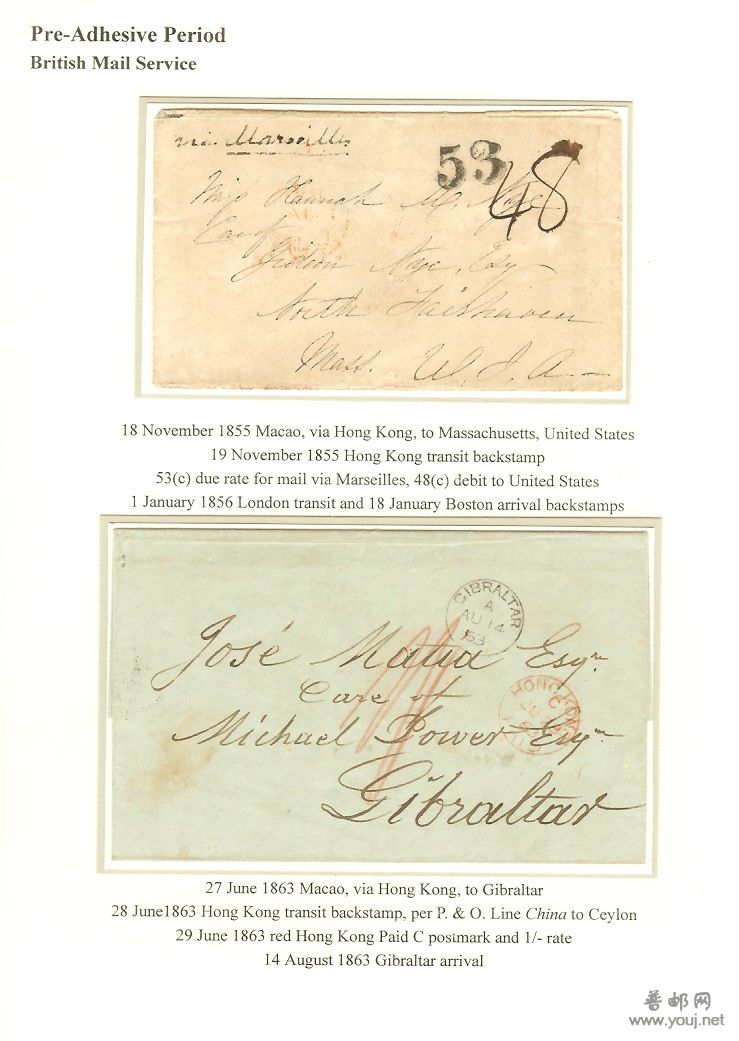 Pre-Adhesive Period
British Mail Service
via Marseilles
53
48
Miss Hannah M. Nye
Care of
Gideon Nye, Esq
North Fairhaven
Mass. U.S.A.
18 November 1855 Macao, via Hong Kong, to Massachusetts, United States
19 November 1855 Hong Kong transit backstamp
53(c) due rate for mail via Marseilles, 48(c) debit to United States
1 January 1856 London transit and 18 January Boston arrival backstamps
GIBRALTAR
A
AU 14
63
José Esqre
HONG KONG
C
PAID
Care of
Michael Power Esqre
Gibraltar
27 June 1863 Macao, via Hong Kong, to Gibraltar
28 June1863 Hong Kong transit backstamp, per P. & O. Line China to Ceylon
29 June 1863 red Hong Kong Paid C postmark and 1/- rate
14 August 1863 Gibraltar arrival
普邮网
www.youj.net